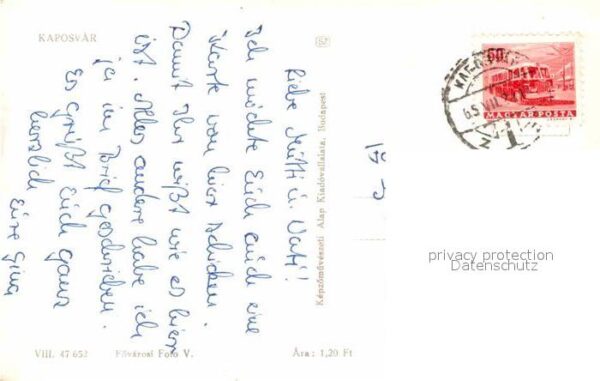 KAPOSVÁR
Liebe Mutti u. Vati!
Ich möchte Euch auch eine
Karte von hier schicken.
Damit Ihr wißt wie es hier
ist. Alles andere habe ich
ja im Brief geschrieben.
Es grüßt Euch ganz
herzlich
Eure Gina
Képzőművészeti Alap Kiadóvállalata, Budapest
VIII. 47 652 Fővárosi Fotó V. Ára: 1,20 Ft
MAGYAR POSTA
privacy protection
Datenschutz